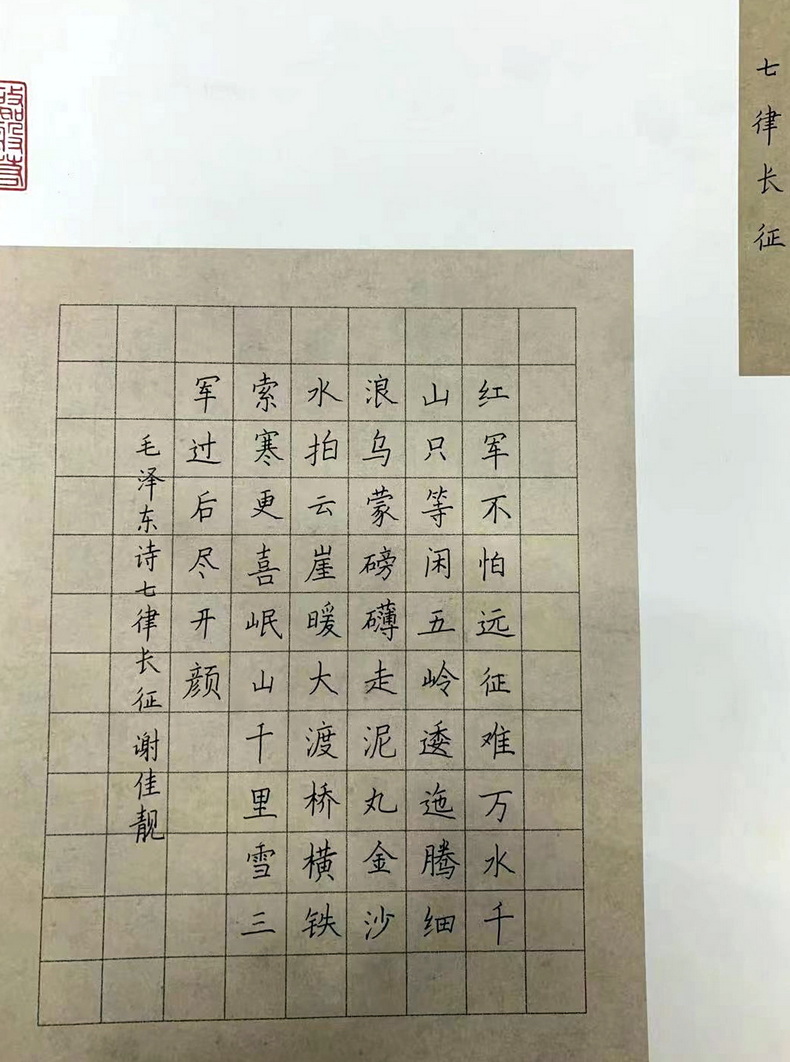 七律长征
红军不怕远征难万水千
山只等闲五岭逶迤腾细
浪乌蒙磅礴走泥丸金沙
水拍云崖暖大渡桥横铁
索寒更喜岷山千里雪三
军过后尽开颜
毛泽东诗七律长征 谢佳靓